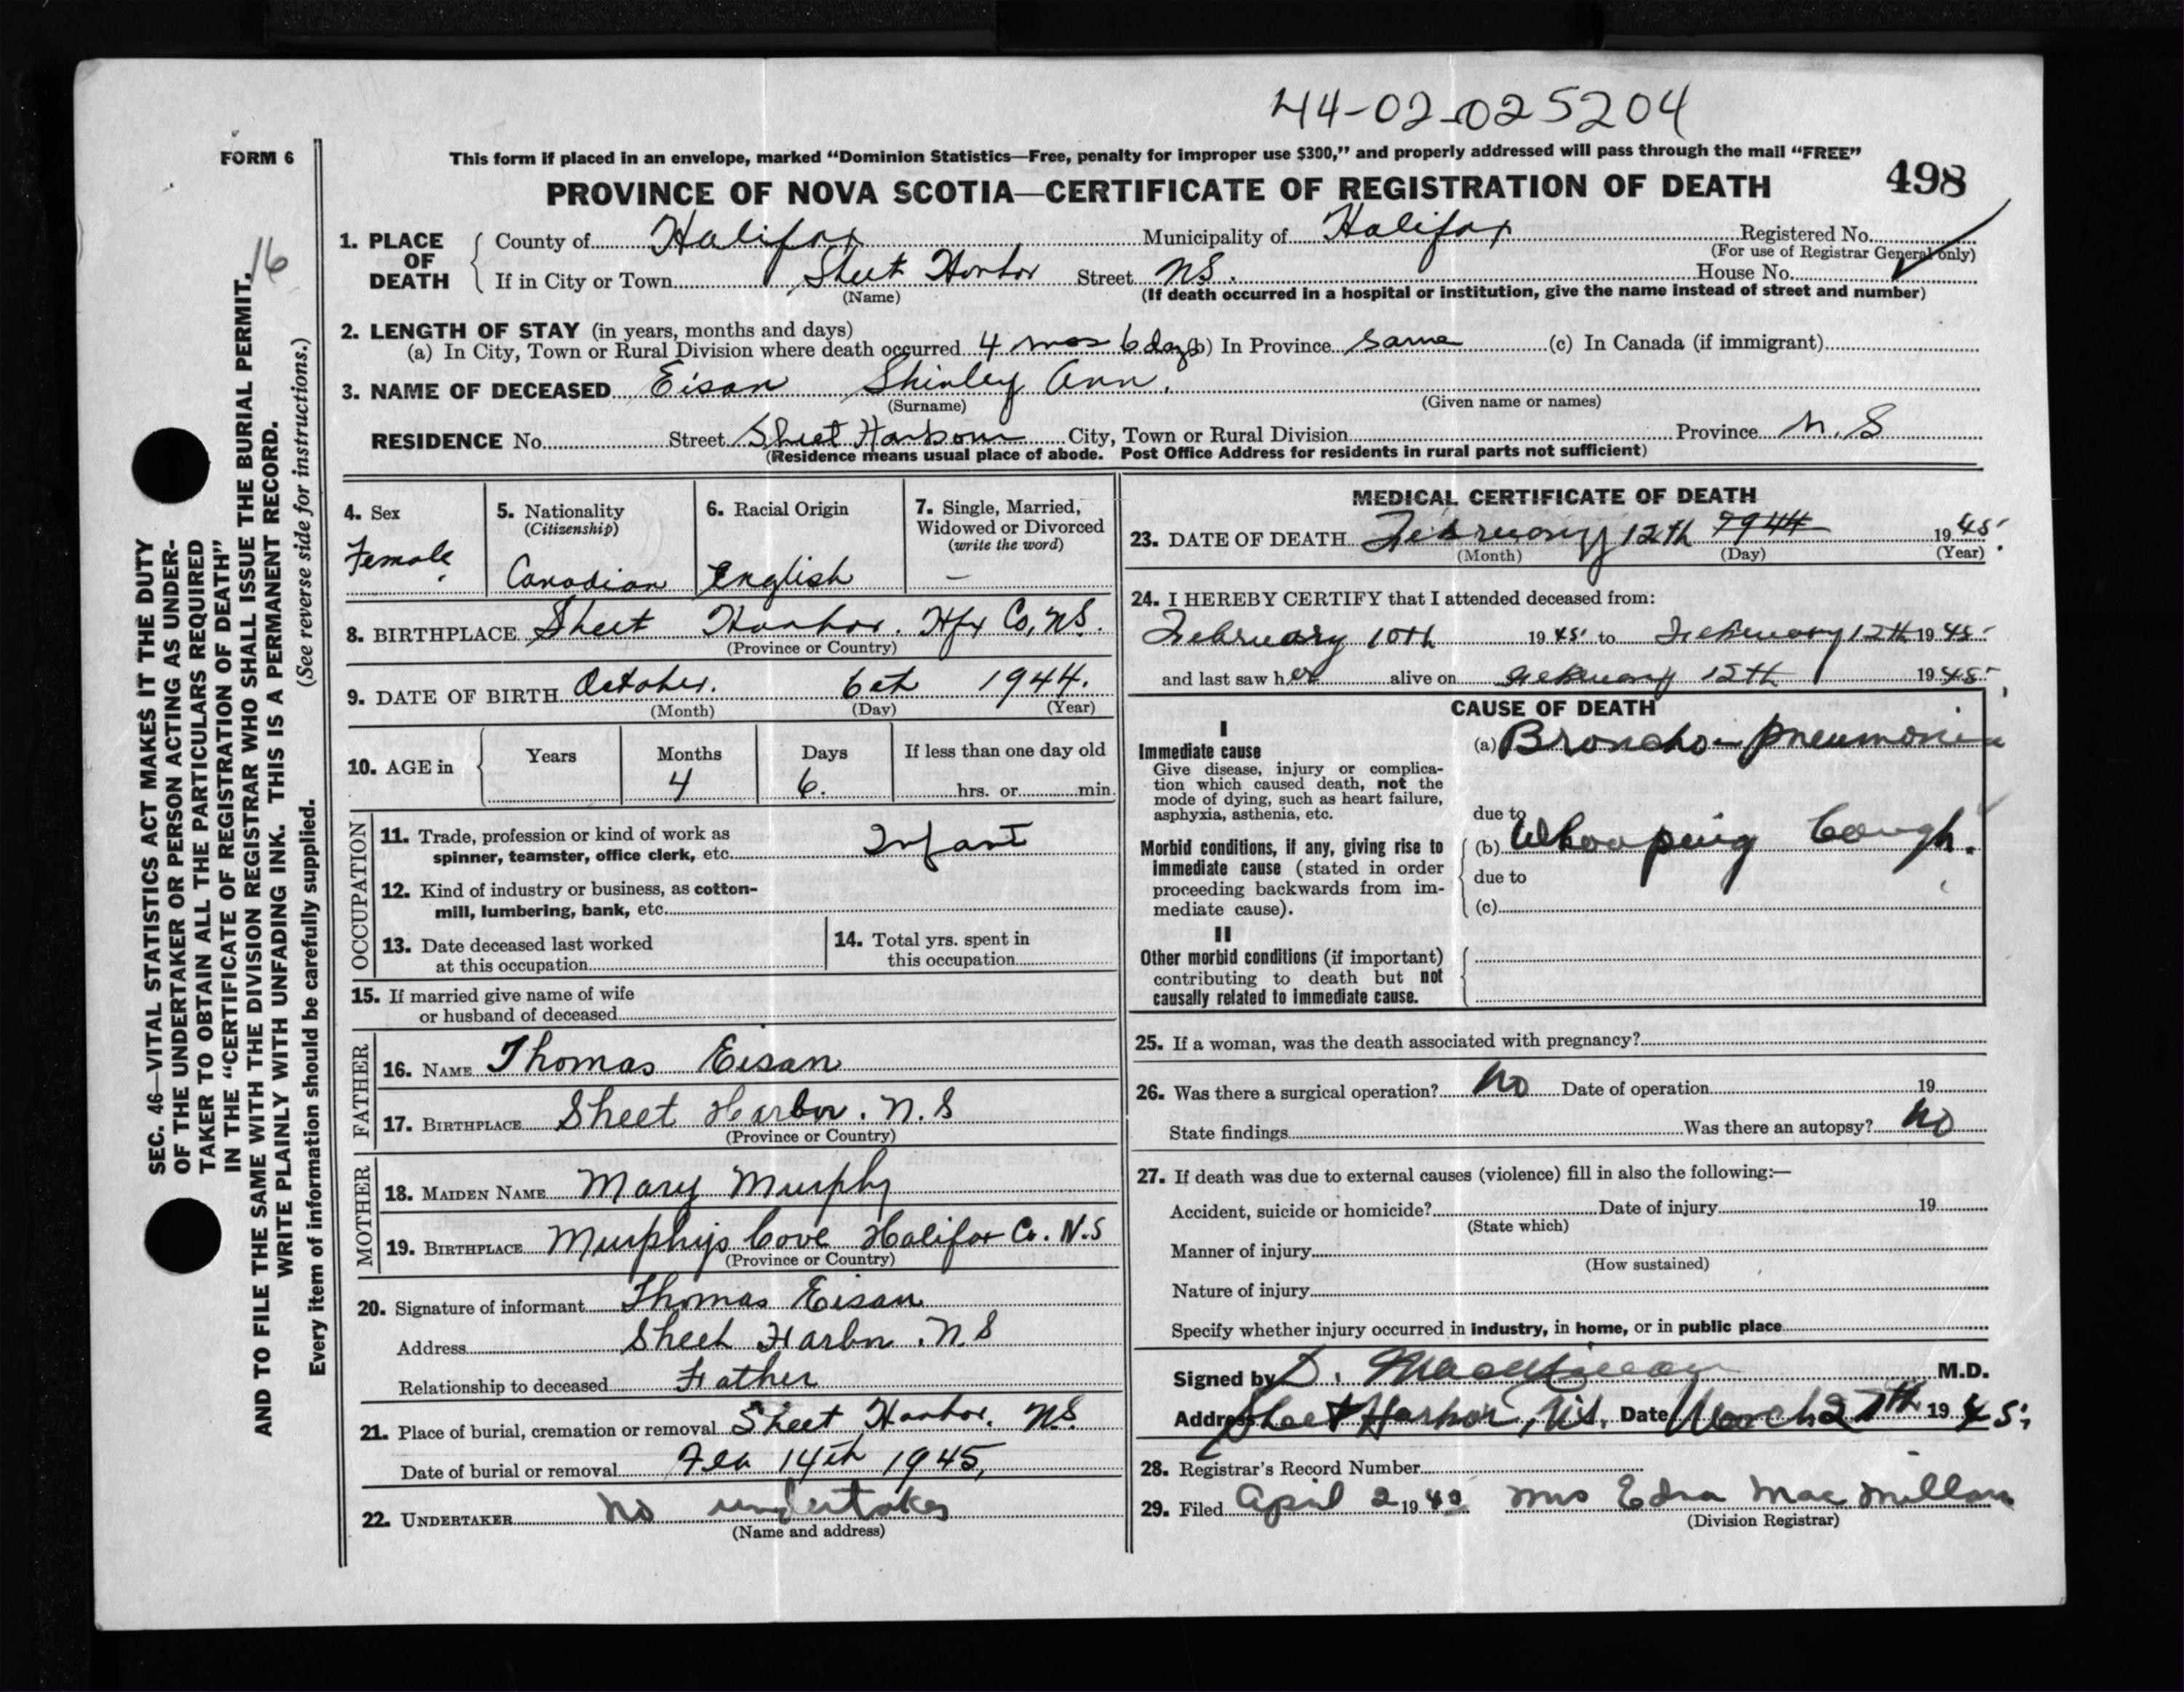 44-02-025204
FORM 6
This form if placed in an envelope, marked "Dominion Statistics—Free, penalty for improper use $300," and properly addressed will pass through the mail "FREE"
498
PROVINCE OF NOVA SCOTIA—CERTIFICATE OF REGISTRATION OF DEATH
16
1. PLACE OF DEATH
County of Halifax Municipality of Halifax Registered No.
(For use of Registrar General only)
If in City or Town Sheet Harbor Street N.S. House No.
(Name) (If death occurred in a hospital or institution, give the name instead of street and number)
2. LENGTH OF STAY (in years, months and days)
(a) In City, Town or Rural Division where death occurred 4 mos 6 days (b) In Province same (c) In Canada (if immigrant)
3. NAME OF DECEASED Eisan Shirley Ann.
(Surname) (Given name or names)
RESIDENCE No. Street Sheet Harbour City, Town or Rural Division Province N.S
(Residence means usual place of abode. Post Office Address for residents in rural parts not sufficient)
4. Sex
Female
5. Nationality
(Citizenship)
Canadian
6. Racial Origin
English
7. Single, Married,
Widowed or Divorced
(write the word)
—
8. BIRTHPLACE Sheet Harbor. Hfx Co, NS.
(Province or Country)
9. DATE OF BIRTH October. 6th 1944.
(Month) (Day) (Year)
10. AGE in
Years Months Days If less than one day old
4 6. hrs. or min.
OCCUPATION
11. Trade, profession or kind of work as
spinner, teamster, office clerk, etc. Infant
12. Kind of industry or business, as cotton-
mill, lumbering, bank, etc.
13. Date deceased last worked
at this occupation
14. Total yrs. spent in
this occupation
15. If married give name of wife
or husband of deceased
FATHER
16. NAME Thomas Eisan
17. BIRTHPLACE Sheet Harbor. N.S
(Province or Country)
MOTHER
18. MAIDEN NAME Mary Murphy
19. BIRTHPLACE Murphys Cove Halifax Co. N.S
(Province or Country)
20. Signature of informant Thomas Eisan
Address Sheet Harbor. N.S
Relationship to deceased Father
21. Place of burial, cremation or removal Sheet Harbor. NS.
Date of burial or removal Feb 14th 1945,
22. UNDERTAKER no undertaker
(Name and address)
MEDICAL CERTIFICATE OF DEATH
23. DATE OF DEATH February 12th 1944 1945.
(Month) (Day) (Year)
24. I HEREBY CERTIFY that I attended deceased from:
February 10th 1945 to February 12th 1945
and last saw her alive on February 12th 1945
CAUSE OF DEATH
I
Immediate cause
Give disease, injury or complica-
tion which caused death, not the
mode of dying, such as heart failure,
asphyxia, asthenia, etc.
(a) Broncho-pneumonia
due to
Morbid conditions, if any, giving rise to
immediate cause (stated in order
proceeding backwards from im-
mediate cause).
(b) Whooping Cough.
due to
(c)
II
Other morbid conditions (if important)
contributing to death but not
causally related to immediate cause.
25. If a woman, was the death associated with pregnancy?
26. Was there a surgical operation? No Date of operation 19
State findings Was there an autopsy? No
27. If death was due to external causes (violence) fill in also the following:—
Accident, suicide or homicide? Date of injury 19
(State which)
Manner of injury
(How sustained)
Nature of injury
Specify whether injury occurred in industry, in home, or in public place
Signed by M.D.
Address Sheet Harbor, N.S. Date March 27th 1945.
28. Registrar's Record Number
29. Filed April 2 19 Mrs Edna MacMillan
(Division Registrar)
SEC. 46—VITAL STATISTICS ACT MAKES IT THE DUTY
OF THE UNDERTAKER OR PERSON ACTING AS UNDER-
TAKER TO OBTAIN ALL THE PARTICULARS REQUIRED
IN THE "CERTIFICATE OF REGISTRATION OF DEATH"
AND TO FILE THE SAME WITH THE DIVISION REGISTRAR WHO SHALL ISSUE THE BURIAL PERMIT.
WRITE PLAINLY WITH UNFADING INK. THIS IS A PERMANENT RECORD.
(See reverse side for instructions.)
Every item of information should be carefully supplied.